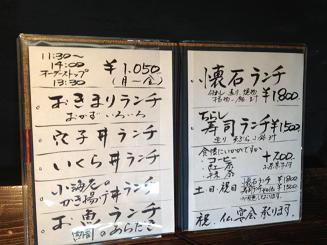 11:30〜
14:00
オーダーストップ
13:30
¥1,050
(月〜金)
おきまりランチ
おかずいろいろ
穴子丼ランチ
いくら丼ランチ
小海老の
かき揚げ丼ランチ
お魚ランチ
のあらだき
懐石ランチ
¥1800
ちらし
寿司ランチ
¥1500
食後にいかがですか
コーヒー
紅茶
+200
土・日・祝日
懐石ランチ ¥1800
¥1500
祝、仏、宴会 承ります。